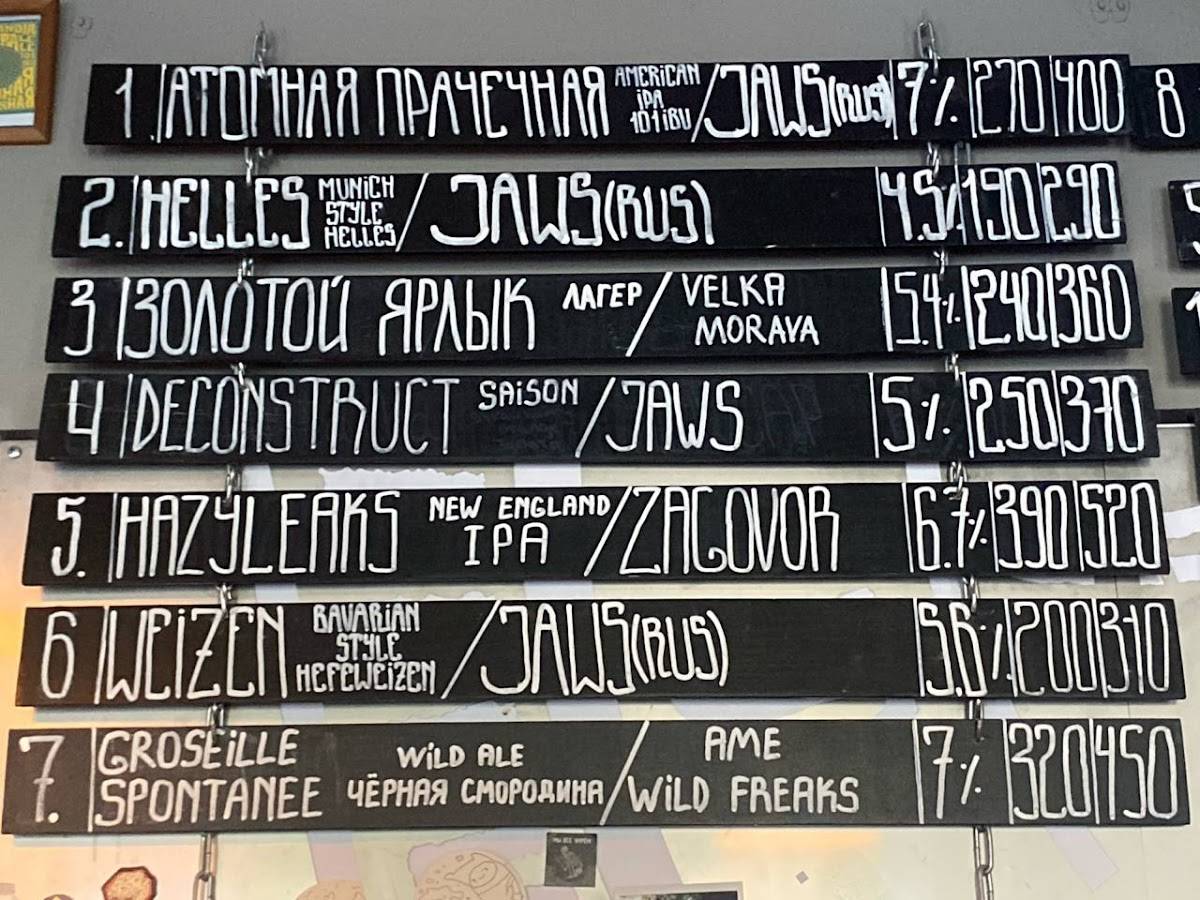 1. АТОМНАЯ ПРАЧЕЧНАЯ AMERICAN IPA 101 IBU / JAWS (RUS) 7% 270 400
8
2. HELLES MUNICH STYLE HELLES / JAWS (RUS) 4.5% 190 290
3 ЗОЛОТОЙ ЯРЛЫК ЛАГЕР / VELKA MORAVA 5.4% 240 360
4 DECONSTRUCT SAISON / JAWS 5% 250 370
5. HAZYLEAKS NEW ENGLAND IPA / ZAGOVOR 6.7% 390 520
6 WEIZEN BAVARIAN STYLE HEFEWEIZEN / JAWS (RUS) 5.6% 200 310
7. GROSEILLE SPONTANEE WILD ALE ЧЁРНАЯ СМОРОДИНА / AME WILD FREAKS 7% 320 450